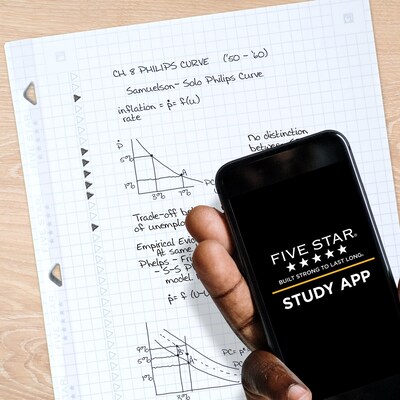 CH. 8 PHILIPS CURVE ('50 - '60)
Samuelson - Solo Philips Curve
inflation = ṗ = f(u)
rate
No distinction
ṗ
5%
A
1%
PC
3% 7%
Trade-off
of unemploy
Empirical Evi
At same
Phelps - Fri
- S-S P
model.
ṗ = f (U-U
9%
5%
B
A
PC=
1%
PC=
3%
FIVE STAR®
BUILT STRONG TO LAST LONG.
STUDY APP